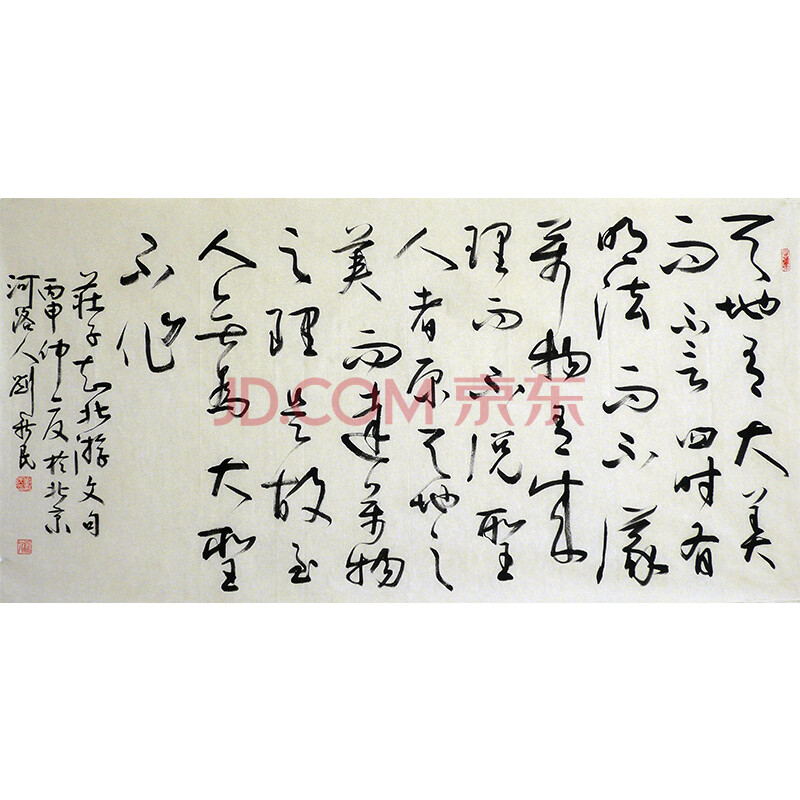 天地有大美
而不言四时有
明法而不議
萬物有成
理而不説聖
人者原天地之
美而達萬物
之理是故至
人無為大聖
不作
莊子知北游文句
丙申仲夏於北京
河洛人劉民
JD.COM 京东